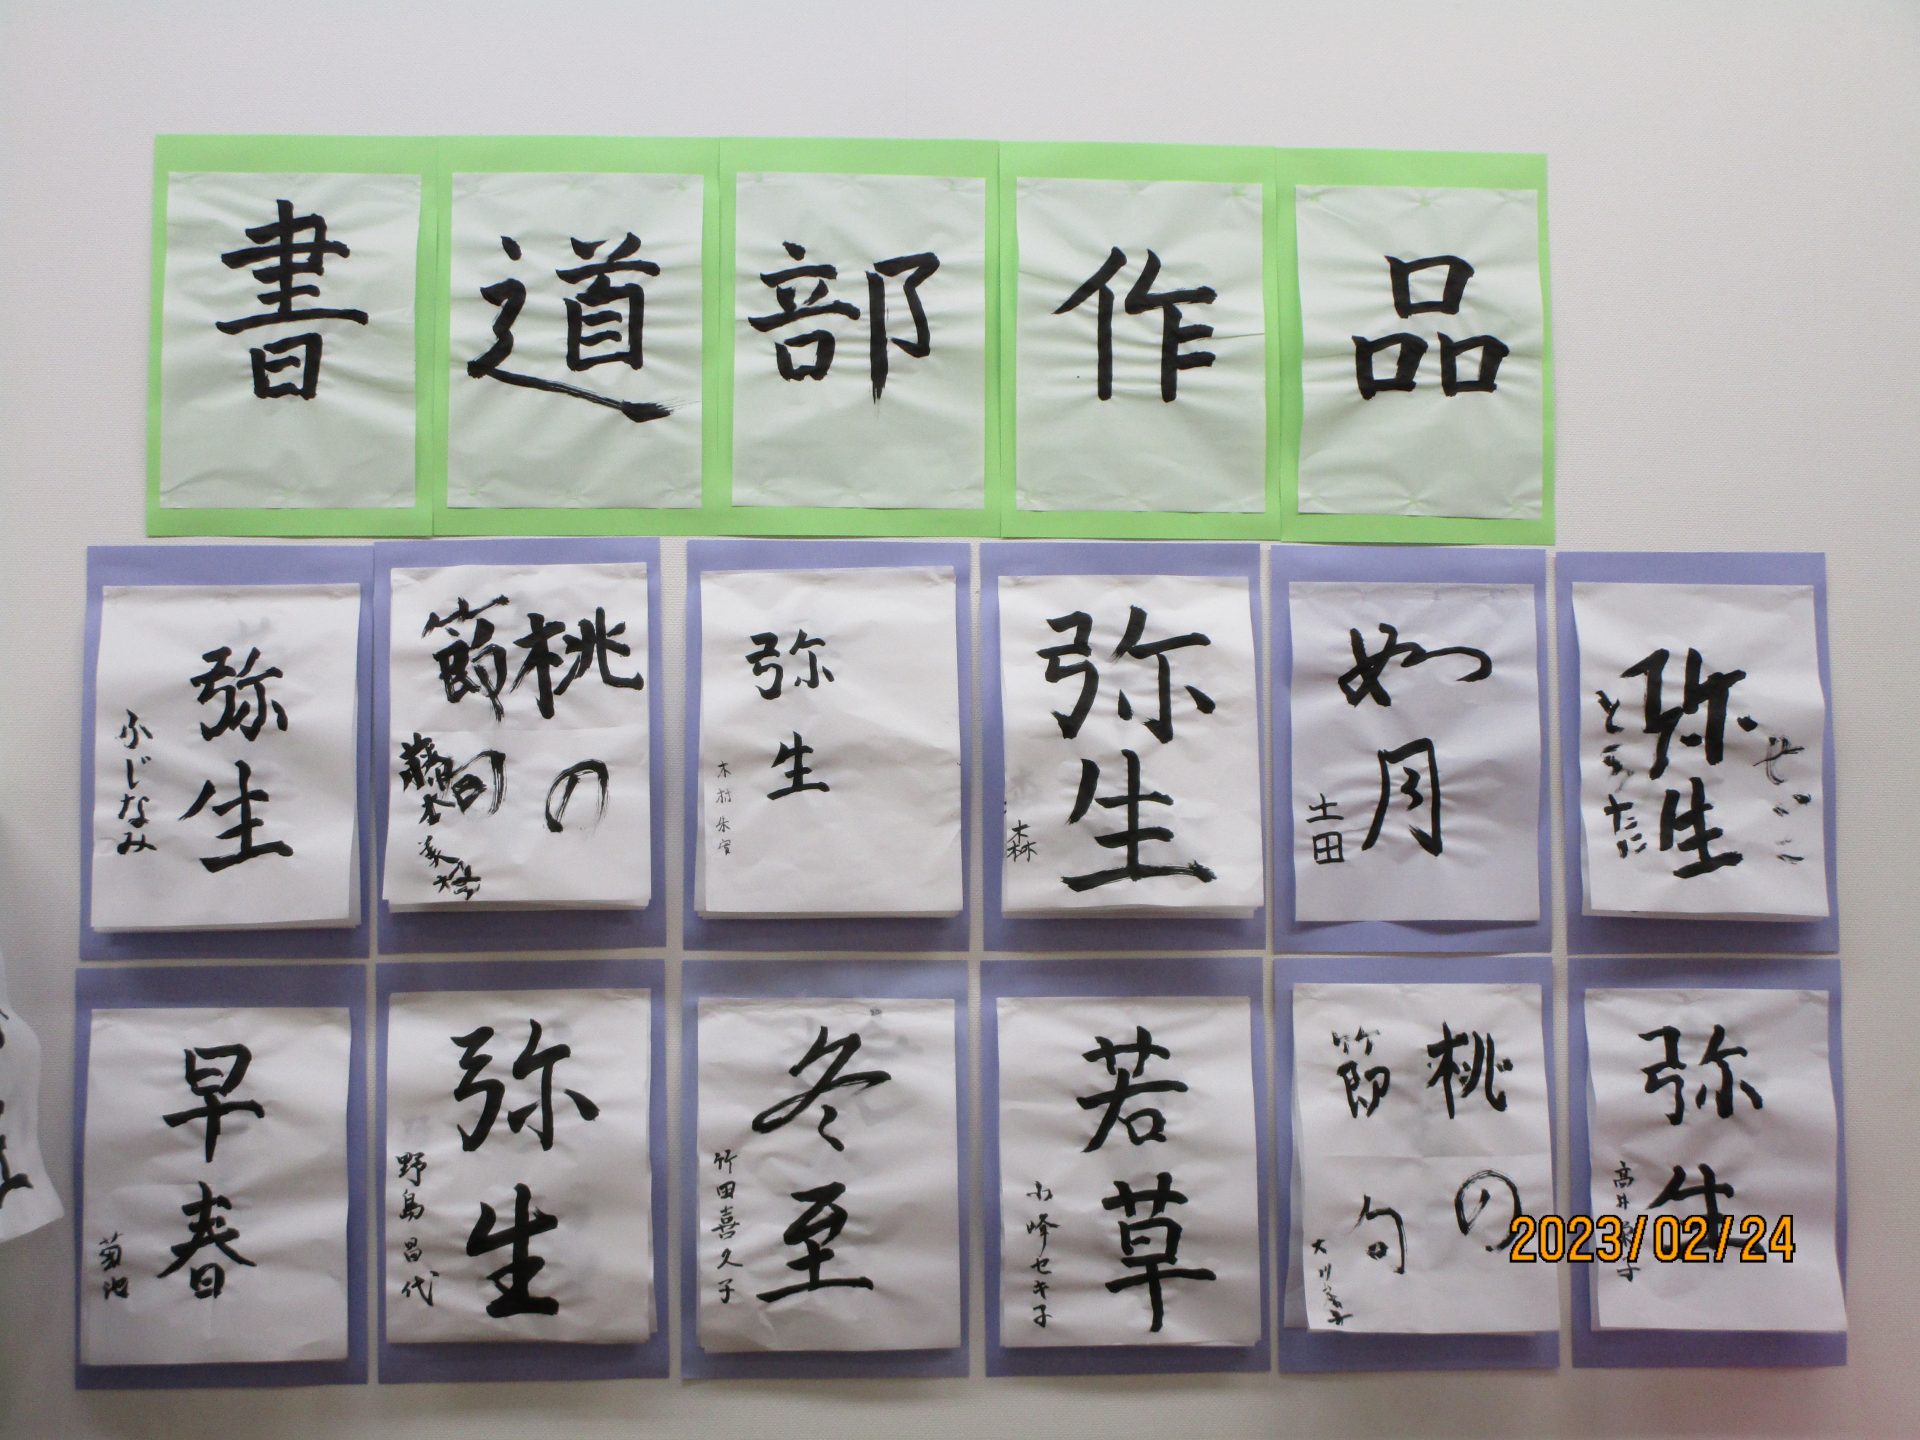 書道部作品
弥生
ふじなみ
桃の
節句
弥生
弥生
森
如月
土田
弥生
早春
菊池
弥生
野島昌代
冬至
竹田喜久子
若草
小峰セキ子
桃の
節句
弥生
2023/02/24